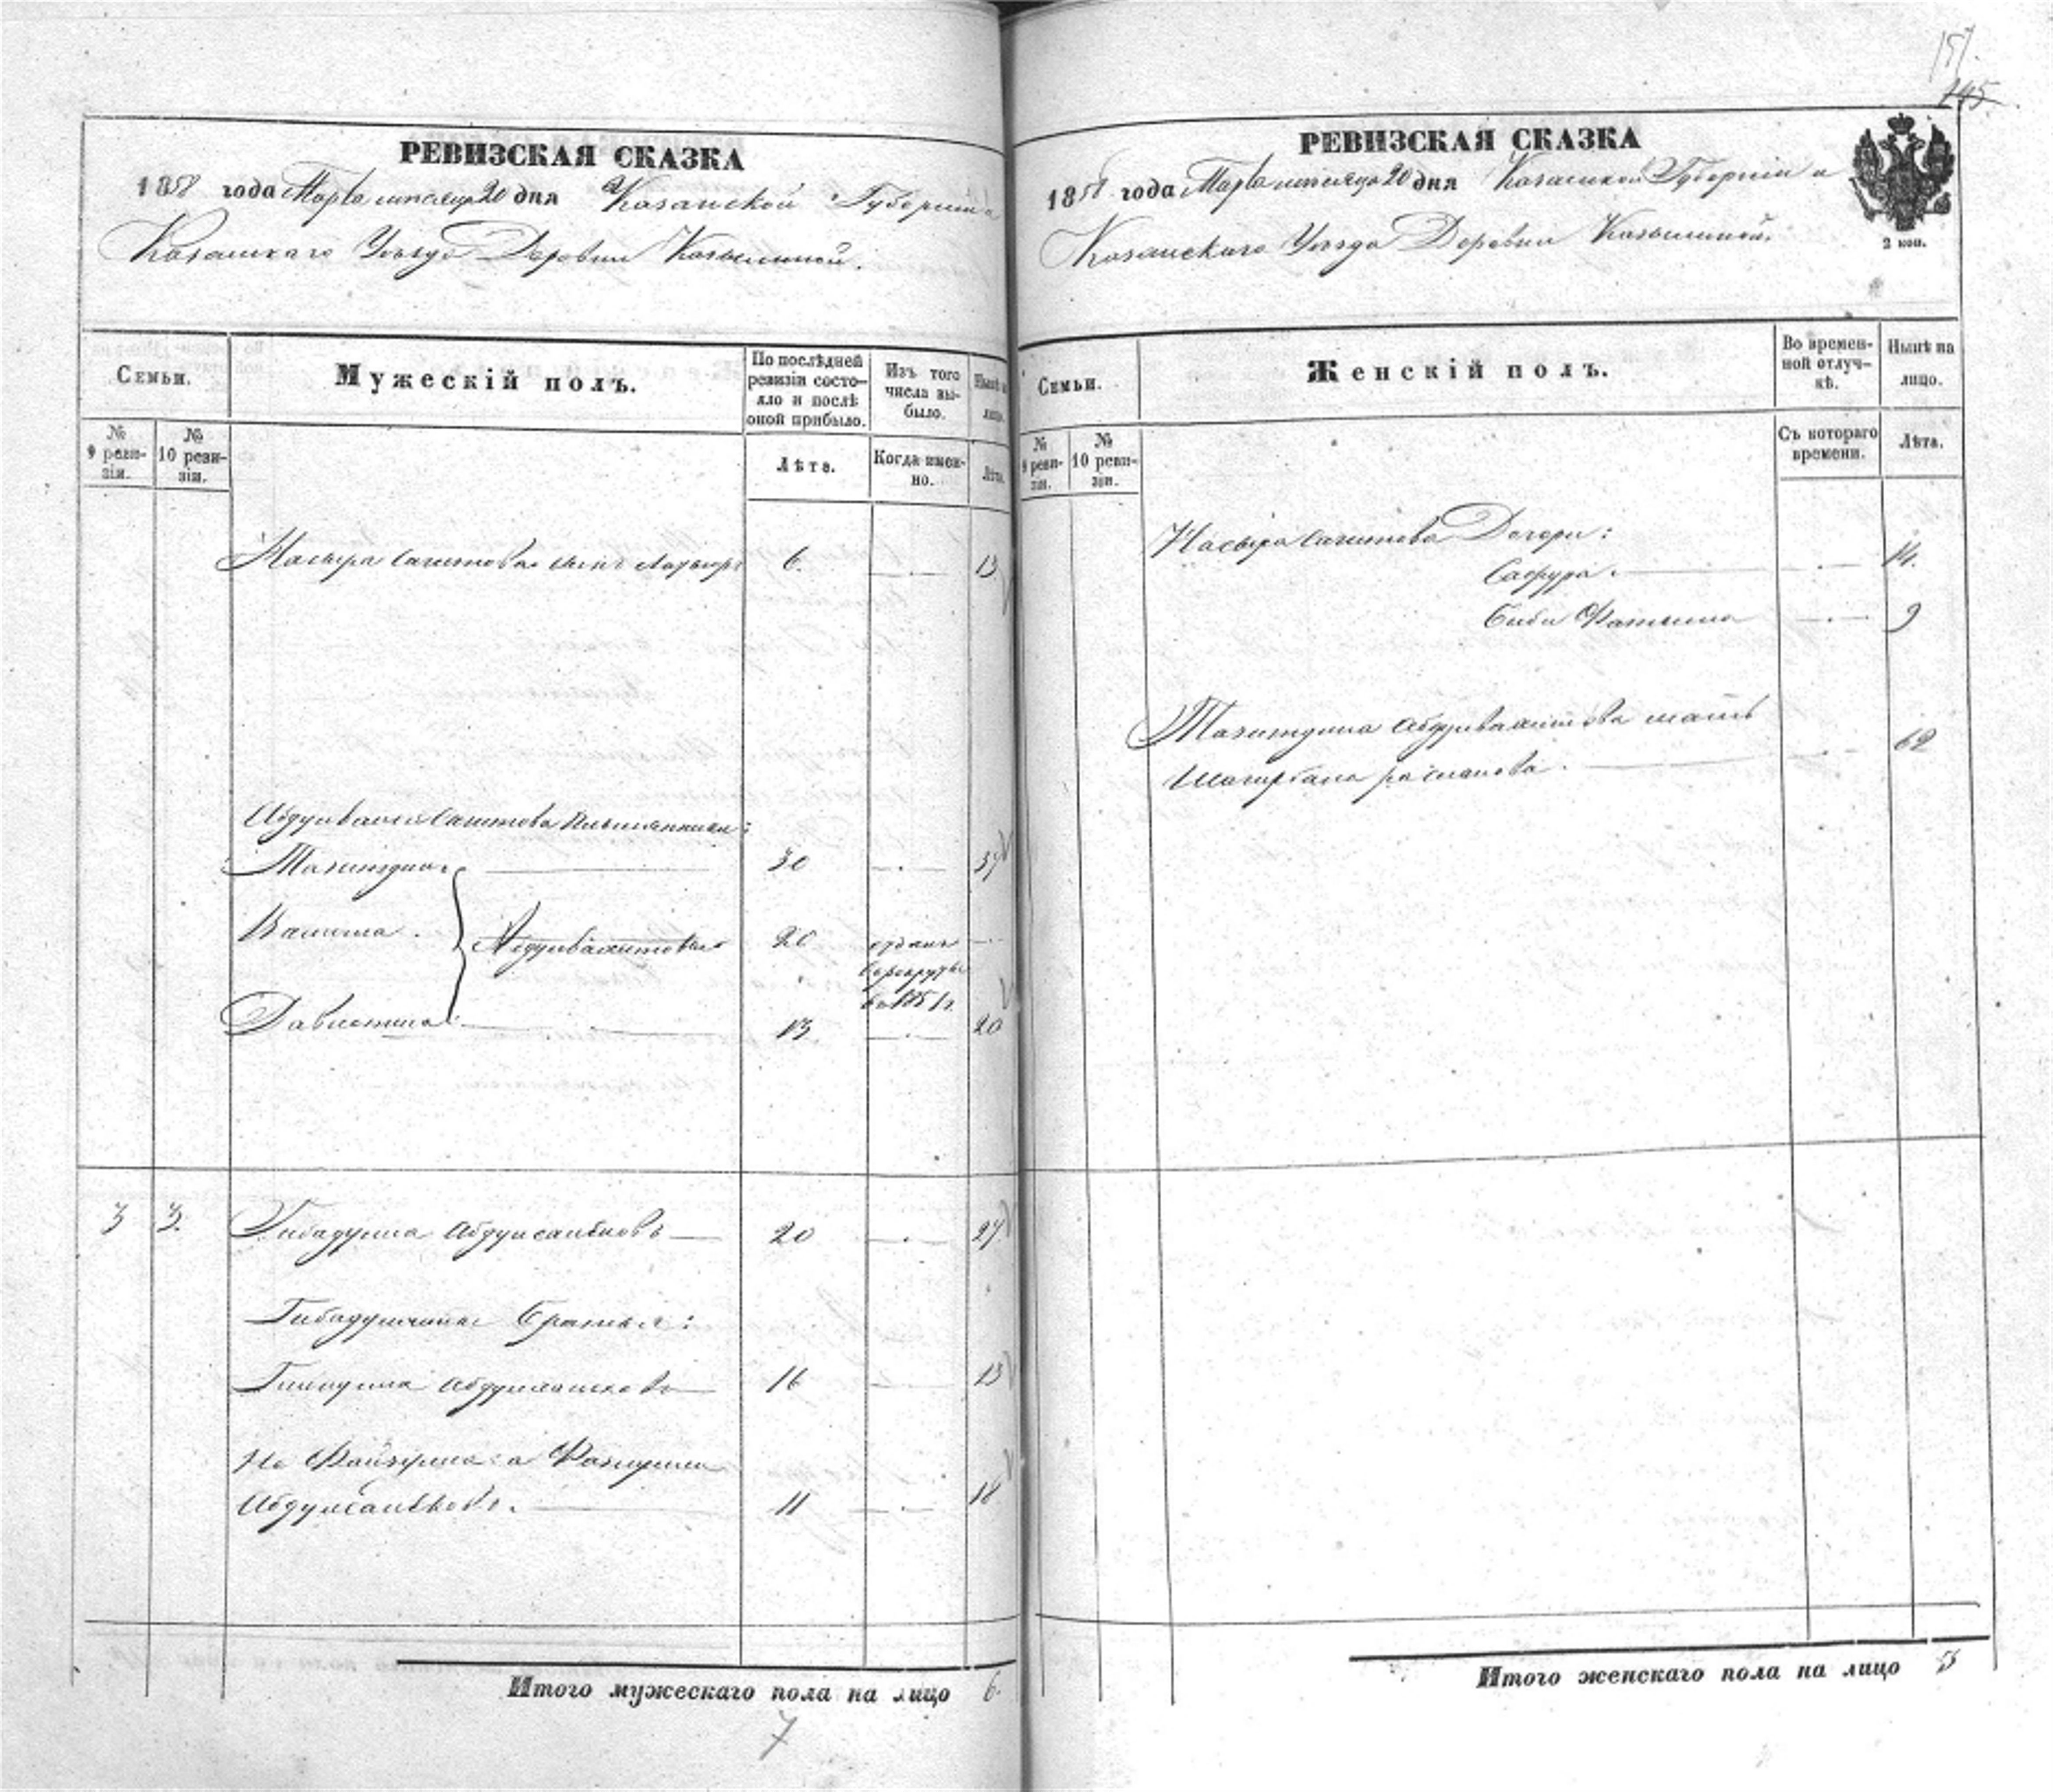 РЕВИЗСКАЯ СКАЗКА
1858 года Марта месяца 20 дня Казанской Губернии
Казанскаго Уезда Деревни
Семьи.
Мужескій полъ.
По послѣдней ревизіи состояло и послѣ оной прибыло.
Изъ того числа выбыло.
Нынѣ на лицо.
№ 9 ревизіи.
№ 10 ревизіи.
Лѣта.
Когда именно.
Лѣта.
Насыра Сагитова сынъ 6. 13
Абдулвалея Сагитова племянники:
Тазитдинъ 30 37
Валитъ Абдулвахитовы 20 отданъ въ рекруты въ 1851 г.
Давлетша 13 20
3 3. Гибадулла Абдулсалиховъ 20 27
Гибадуллины братья:
Абдулсалиховъ 16
Не Файзулла а Фазлулла
Абдулсалиховъ. 11 18
Итого мужескаго пола на лицо 6.
7
151
145
РЕВИЗСКАЯ СКАЗКА
2 коп.
1858 года Марта месяца 20 дня Казанской Губернии и
Казанскаго Уезда Деревни
Семьи.
Женскій полъ.
Во временной отлучкѣ.
Нынѣ на лицо.
№ 9 ревизіи.
№ 10 ревизіи.
Съ котораго времени.
Лѣта.
Насыра Сагитова Дочери:
Сафура. 14.
Биби Фатыма 9
Тазитдина Абдулвахитова мать
62
Итого женскаго пола на лицо 3